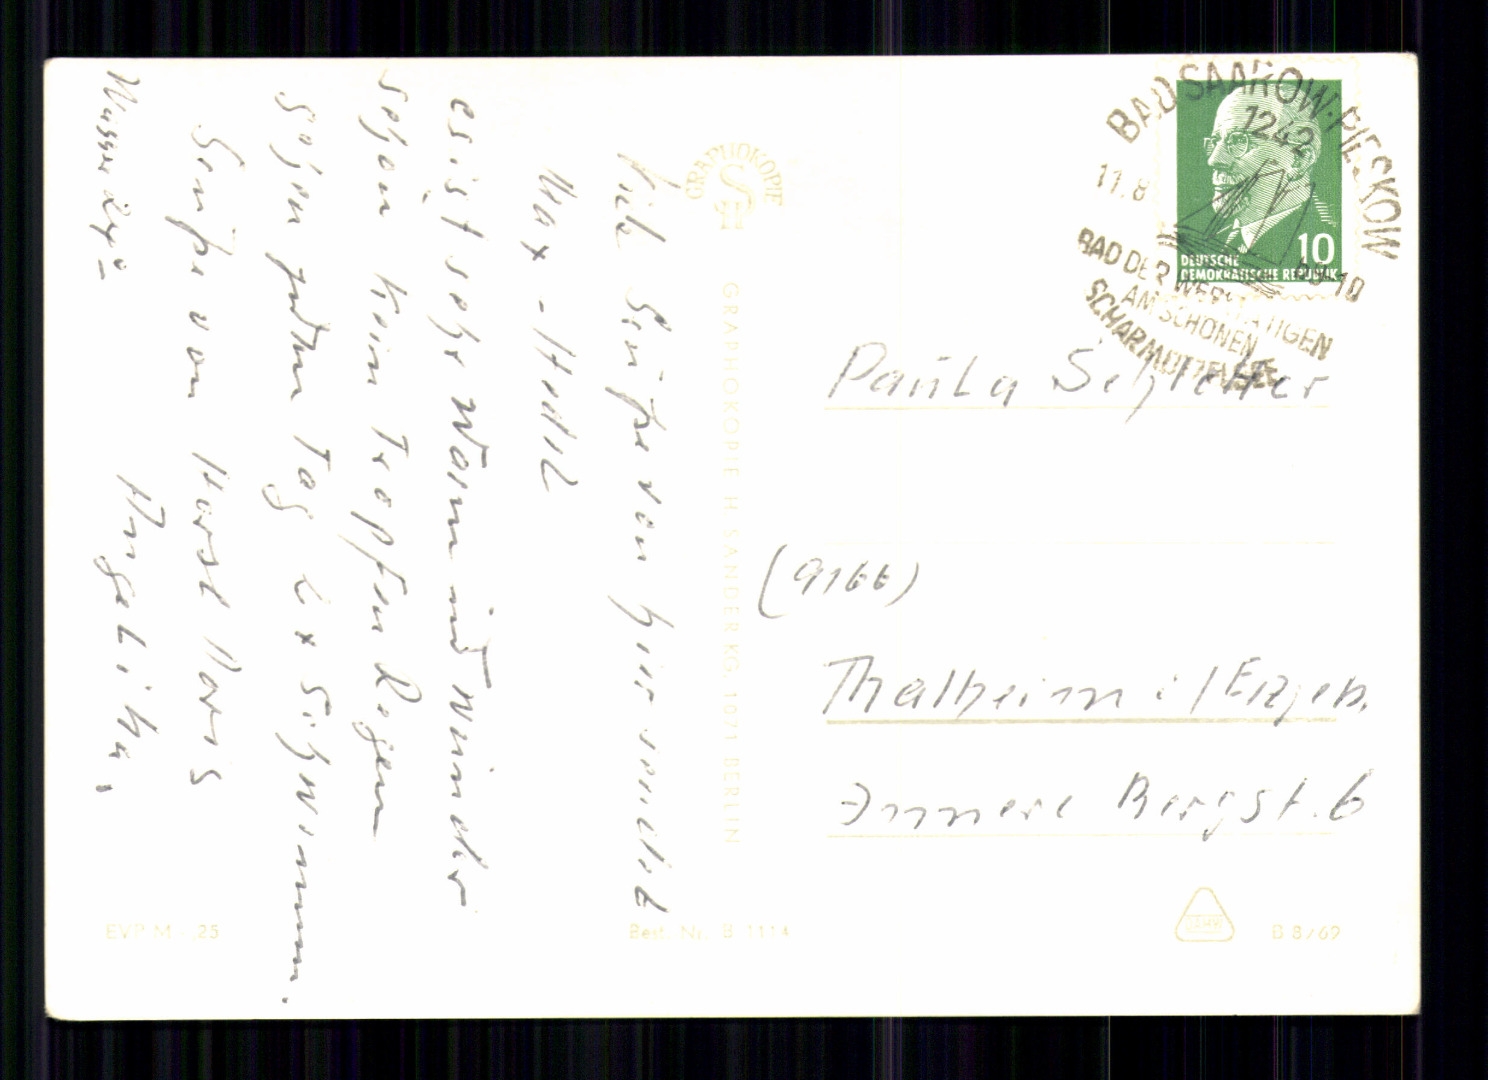 Viele Grüße von hier sendet
Max - Hertel
es ist sehr Warm und wunder
schön Kein Tropfen Regen
gehen jeden Tag 2x Schwimmen.
Grüße von Horst Doris
Angelika,
Wasser 24°
GRAPHOKOPIE
GRAPHOKOPIE H. SANDER KG, 1071 BERLIN
BAD SAAROW-PIESKOW
1242
11.8
BAD DER WERKTÄTIGEN
AM SCHÖNEN
SCHARMÜTZELSEE
10
DEUTSCHE
DEMOKRATISCHE REPUBLIK
Paula
(9166)
Thalheim i/Erzgeb.
Innere Bergst. 6
EVP M -,25
Best. Nr. B 1114
B 8/69